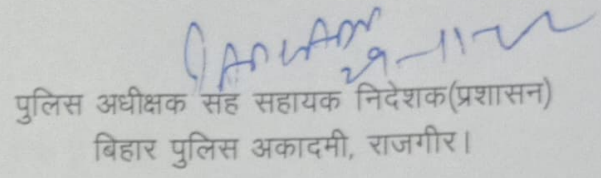 पुलिस अधीक्षक सह सहायक निदेशक(प्रशासन)
बिहार पुलिस अकादमी, राजगीर।